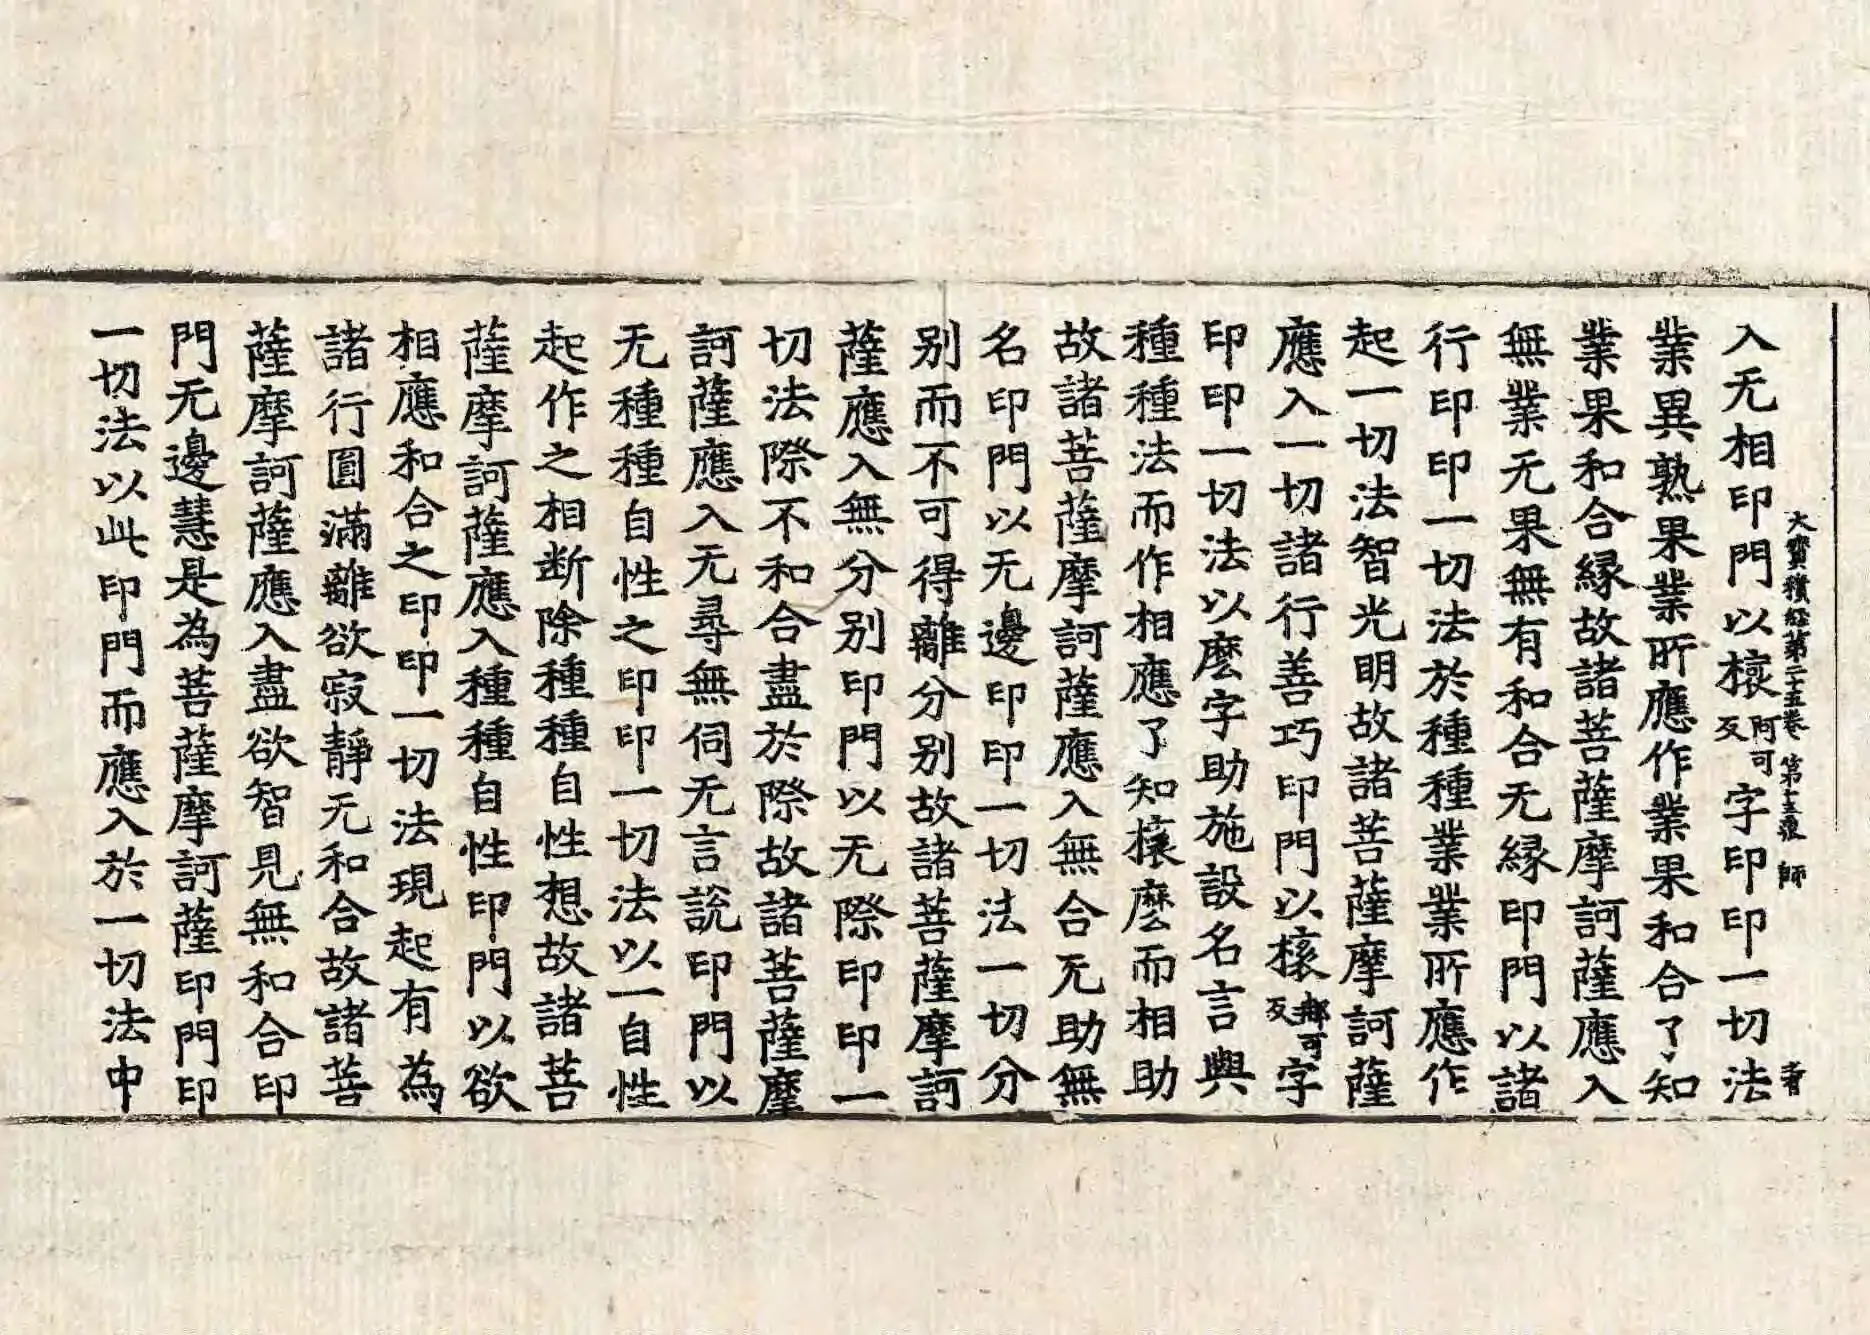 大寶積經第二十五卷 第十三張 師
入无相印門以榱阿可反字印印一切法
業異熟果業業所應作業果和合了知
業果和合緣故諸菩薩摩訶薩應入
無業无果無有和合无緣印門以諸
行印印一切法於種種業業所應作
起一切法智光明故諸菩薩摩訶薩
應入一切諸行善巧印門以榱鄉可反字
印印一切法以麽字助施設名言與
種種法而作相應了知榱麽而相助
故諸菩薩摩訶薩應入無合无助無
名印門以无邊印印一切法一切分
別而不可得離分別故諸菩薩摩訶
薩應入無分別印門以无際印印一
切法際不和合盡於際故諸菩薩摩
訶薩應入无尋無伺无言說印門以
无種種自性之印印一切法以一自性
起作之相断除種種自性想故諸菩
薩摩訶薩應入種種自性印門以欲
相應和合之印印一切法現起有為
諸行圓滿離欲寂靜无和合故諸菩
薩摩訶薩應入盡欲智見無和合印
門无邊慧是為菩薩摩訶薩印門印
一切法以此印門而應入於一切法中